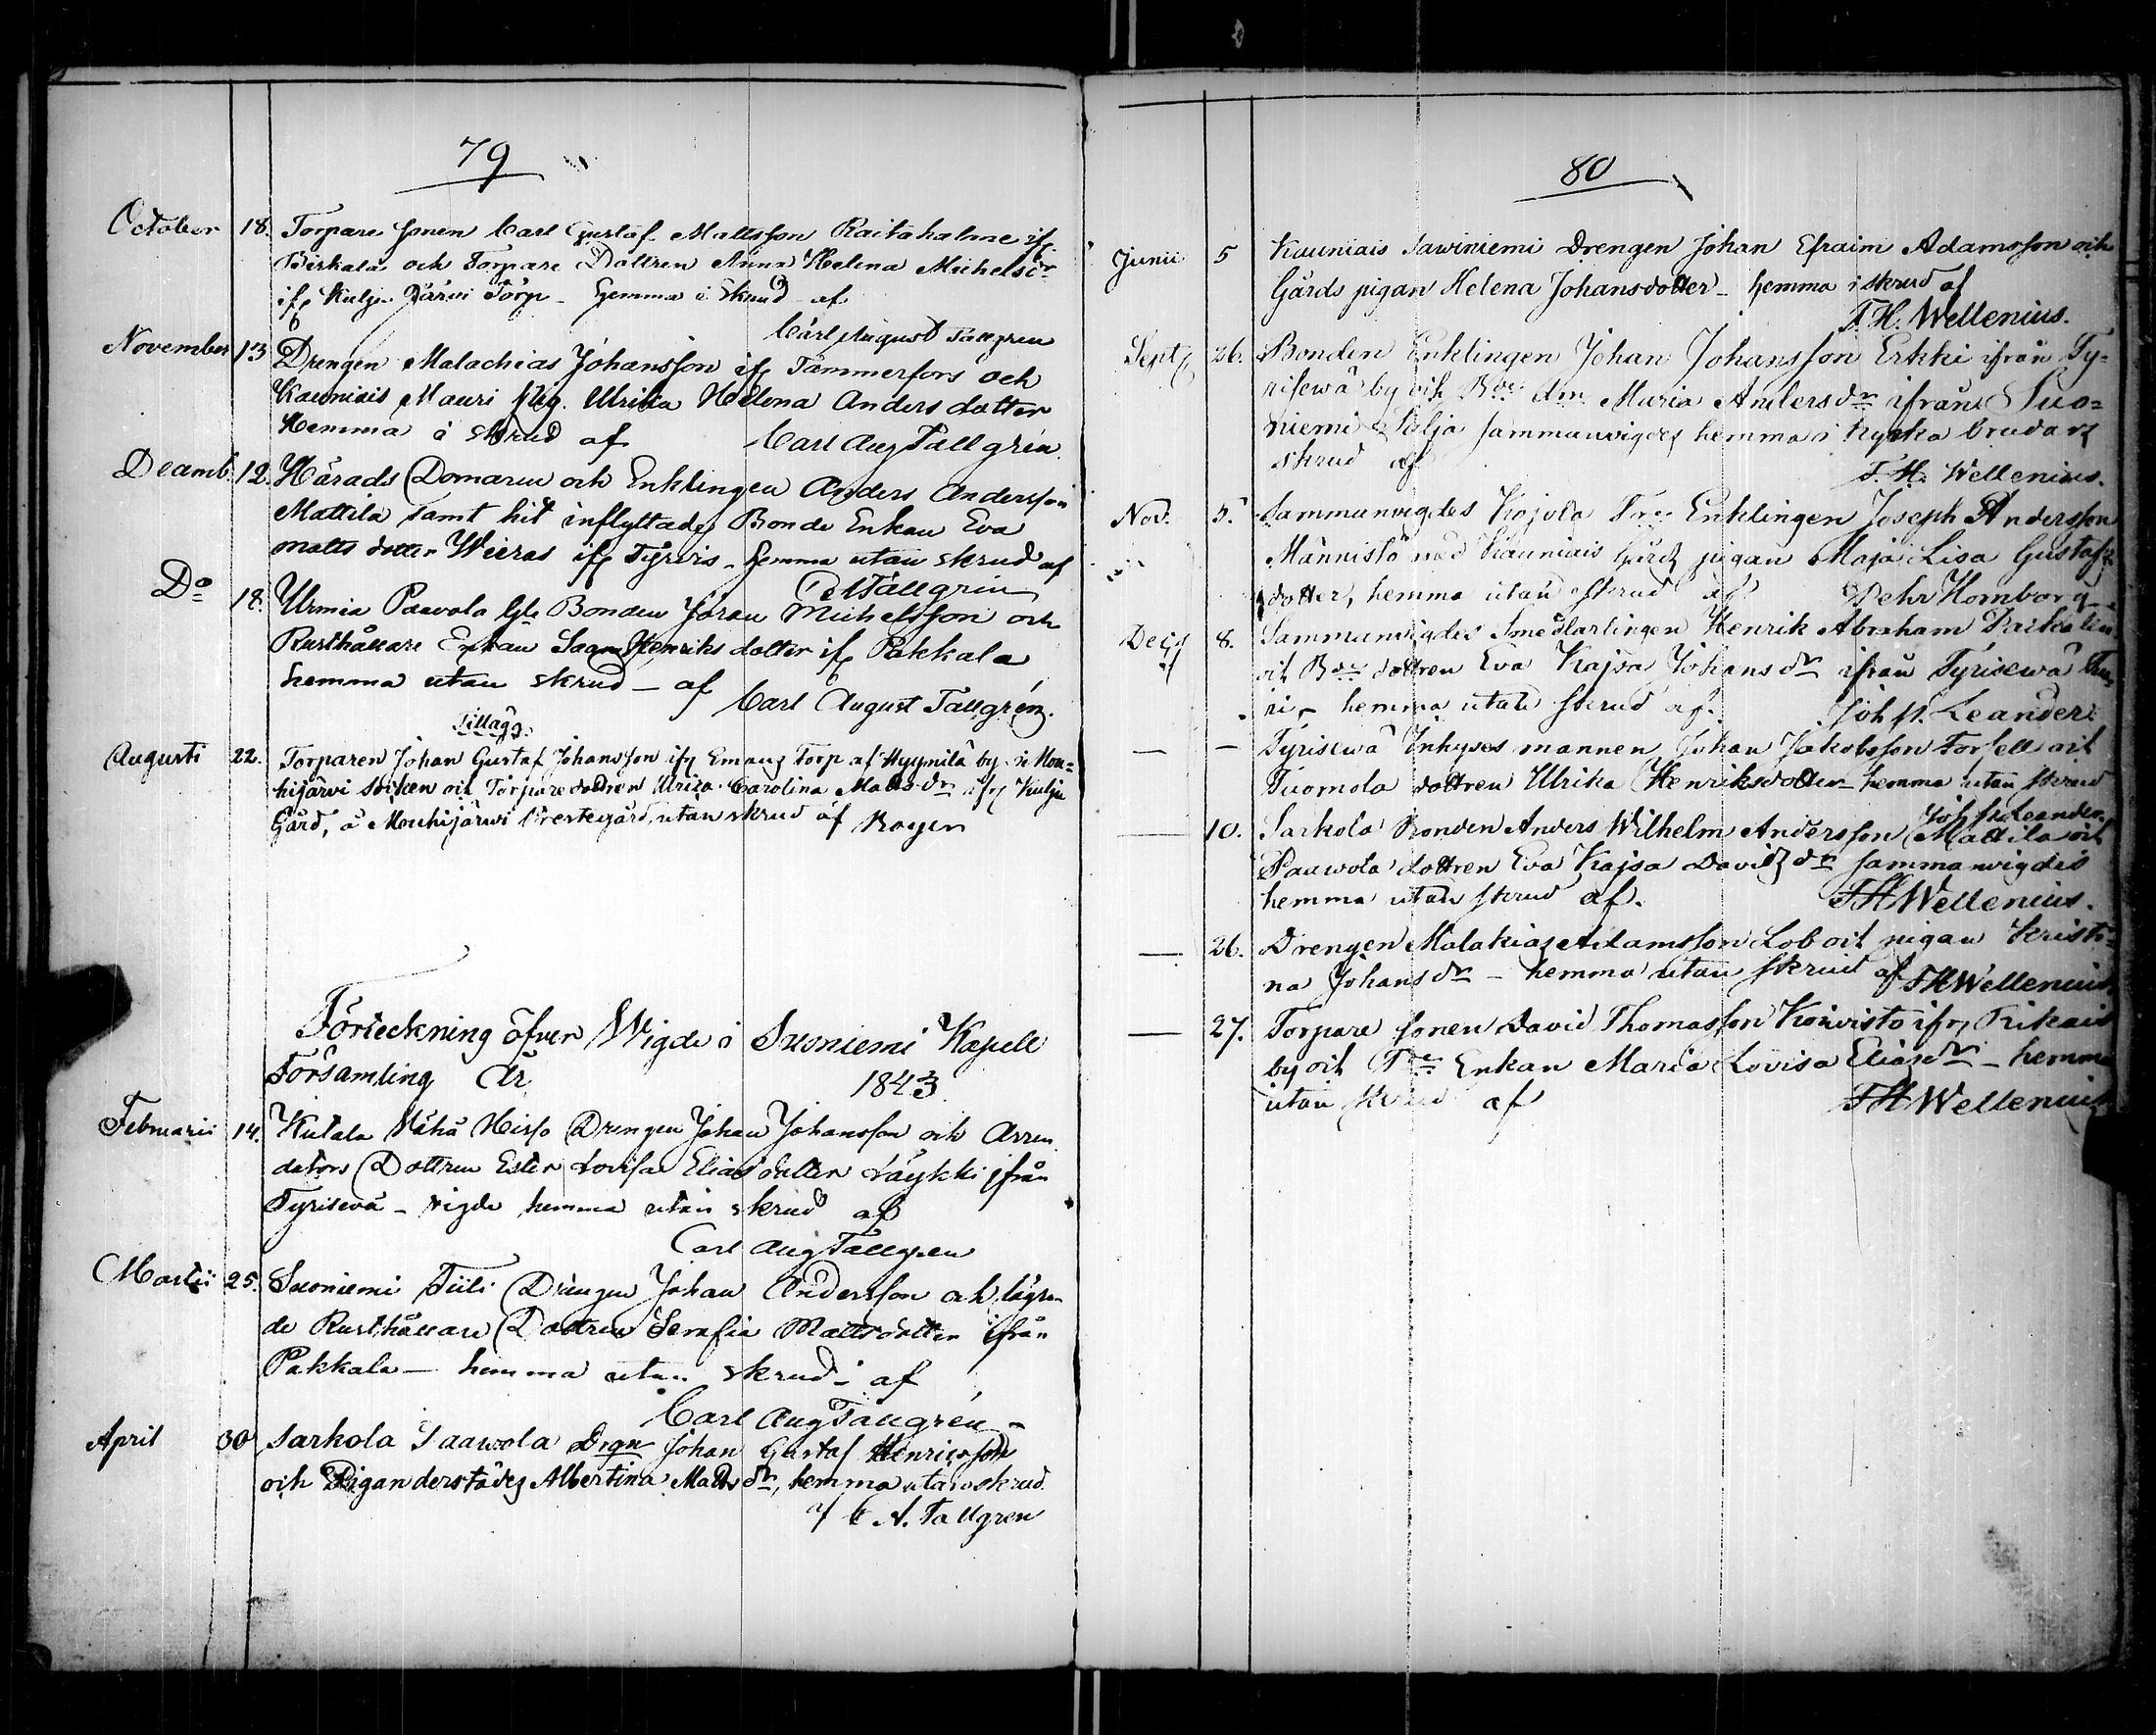 79
October 18. Torpare sonen Carl Gustaf Mattsson Raitahalme ifr.
Birkala och Torpare Dottren Anna Helena Michelsdr
ifr Kulju Järvi Torp - hemma i skrud af
Carl August Tallgren
November 13 Drengen Malachias Johansson ifr Tammerfors och
Kauniais Mauri pig. Ulrika Helena Anders dotter
Hemma i skrud af Carl Aug Tallgrén.
Decemb. 12. Härads Domaren och Enklingen Anders Andersson
Mattila samt hit inflyttade Bonde Enkan Eva
Matts dotter Wieras ifr Tyrvis - hemma utan skrud af
Tallgrén
Do 18. Urmia Paavola Gle Bonden Jöran Michelsson och
Rusthållare Enkan Henriks dotter ifr Pakkala
hemma utan skrud - af
Carl August Tallgrén.
Tillägg.
Augusti 22. Torparen Johan Gustaf Johansson ifr Emaus Torp af Hyynilä by i Mou=
hijärvi Soken och Torpare dottren Ulrica Carolina Matts dr ifr Kulju
Gård, i Mouhijärwi Prestegård, utan skrud af Roger
Förteckning öfver Wigde i Suoniemi Kapell
Församling År 1843
Februarii 14. Kutala Vähä Hirso Drengen Johan Johansson och Arren
dators Dottren Ester Lovisa Elias dotter Läykki ifrån
Tyrisevä - vigde hemma utan skrud af
Carl Aug Tallgren
Martii 25. Suoniemi Tiili Drengen Johan Andersson och lägen
de Rusthållare Dottren Serafia Matts dotter ifrån
Pakkala - hemma utan skrud - af
Carl Aug Tallgrén -
April 30 Sarkola Paawola Drgn Johan Gustaf Henricsson
och Pigan derstädes Albertina Matts dr, hemma utan skrud
af C A. Tallgren
80
Junii 5 Kauniais Sawiniemi Drengen Johan Efraim Adamsson och
Gårds pigan Helena Johansdotter - hemma i skrud af
F. H. Wellenius.
Sept 26. Bonden Enklingen Johan Johansson Erkki ifrån Ty-
risewä by och Bde dm Maria Anders dr ifrån Suo=
niemi Silja sammanvigdes hemma i kyrka brudars
skrud af
F. H. Wellenius.
Nov. 5. Sammanvigdes Kojola Tre Enklingen Joseph Andersson
Männistö med Kauniais Gårds pigan Maja Lisa Gustafs
dotter, hemma utan skrud af Pehr Homborg
Dec 8. Sammanvigdes Smedlärlingen Henrik Abraham
och Bde dottren Eva Kajsa Johans dr ifrån Tyrisewä
ri - hemma utan skrud af. Joh Fr. Leander
— — Tyrisewä Inhyses mannen Johan Jakobsson Forsell och
Tuomola dottren Ulrika Henriksdotter hemma utan skrud
Joh Fr. Leander.
— 10. Sarkola Bonden Anders Wilhelm Andersson Mattila och
Paawola dottren Eva Kajsa Davids dr sammanvigdes
hemma utan skrud af. F H Wellenius.
— 26. Drengen Malakias Adamsson Lob och pigan Kristi-
na Johans dr - hemma utan skrud af F H Wellenius
— 27. Torpare sonen David Thomasson Koivisto ifr Rikais
by och Tre Enkan Maria Lovisa Elias dr - hemma
utan skrud af F H Wellenius